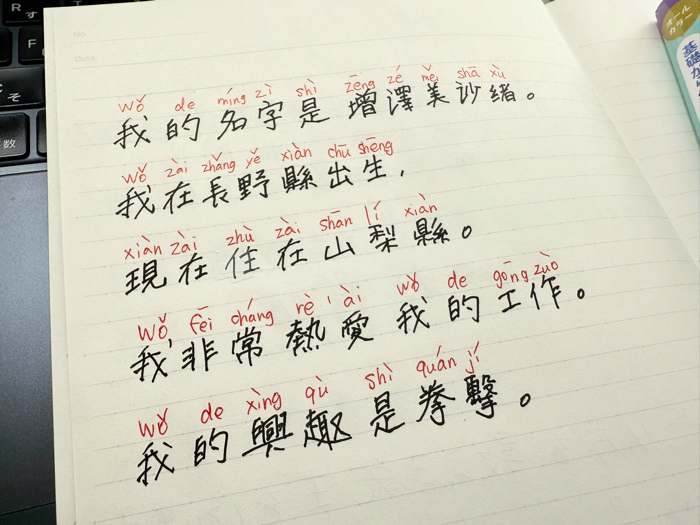 No.
Date
wǒ de míng zì shì zēng zé měi shā xù
我的名字是增澤美沙緒。
wǒ zài zhǎng yě xiàn chū shēng
我在長野縣出生，
xiàn zài zhù zài shān lí xiàn
現在住在山梨縣。
wǒ fēi cháng rè'ài wǒ de gōng zuò
我非常熱愛我的工作。
wǒ de xìng qù shì quán jí
我的興趣是拳擊。
オールカラー
基礎から